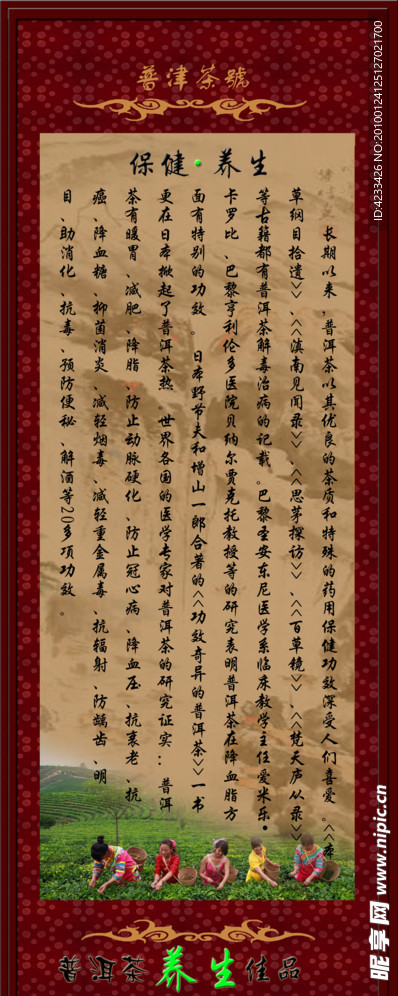 普津茶號
保健·养生
长期以来,普洱茶以其优良的茶质和特殊的药用保健功效深受人们喜爱。<<本
草纲目拾遗>>、<<滇南见闻录>>、<<思茅探访>>、<<百草镜>>、<<梵天庐丛录>>
等古籍都有普洱茶解毒治病的记载。巴黎圣安东尼医学系临床教学主任爱米乐•
卡罗比、巴黎亨利伦多医院贝纳尔贾克托教授等的研究表明普洱茶在降血脂方
面有特别的功效。 日本野芳夫和增山一郎合著的<<功效奇异的普洱茶>>一书
更在日本掀起了普洱茶热。世界各国的医学专家对普洱茶的研究证实:: 普洱
茶有暖胃、减肥、降脂、防止动脉硬化、防止冠心病、降血压、抗衰老、抗
癌、降血糖、抑菌消炎、减轻烟毒、减轻重金属毒、抗辐射、防龋齿、明
目、助消化、抗毒、预防便秘、解酒等20多项功效。
普洱茶养生佳品
ID:4233426 NO:20100124125127021700
昵享网 www.nipic.cn